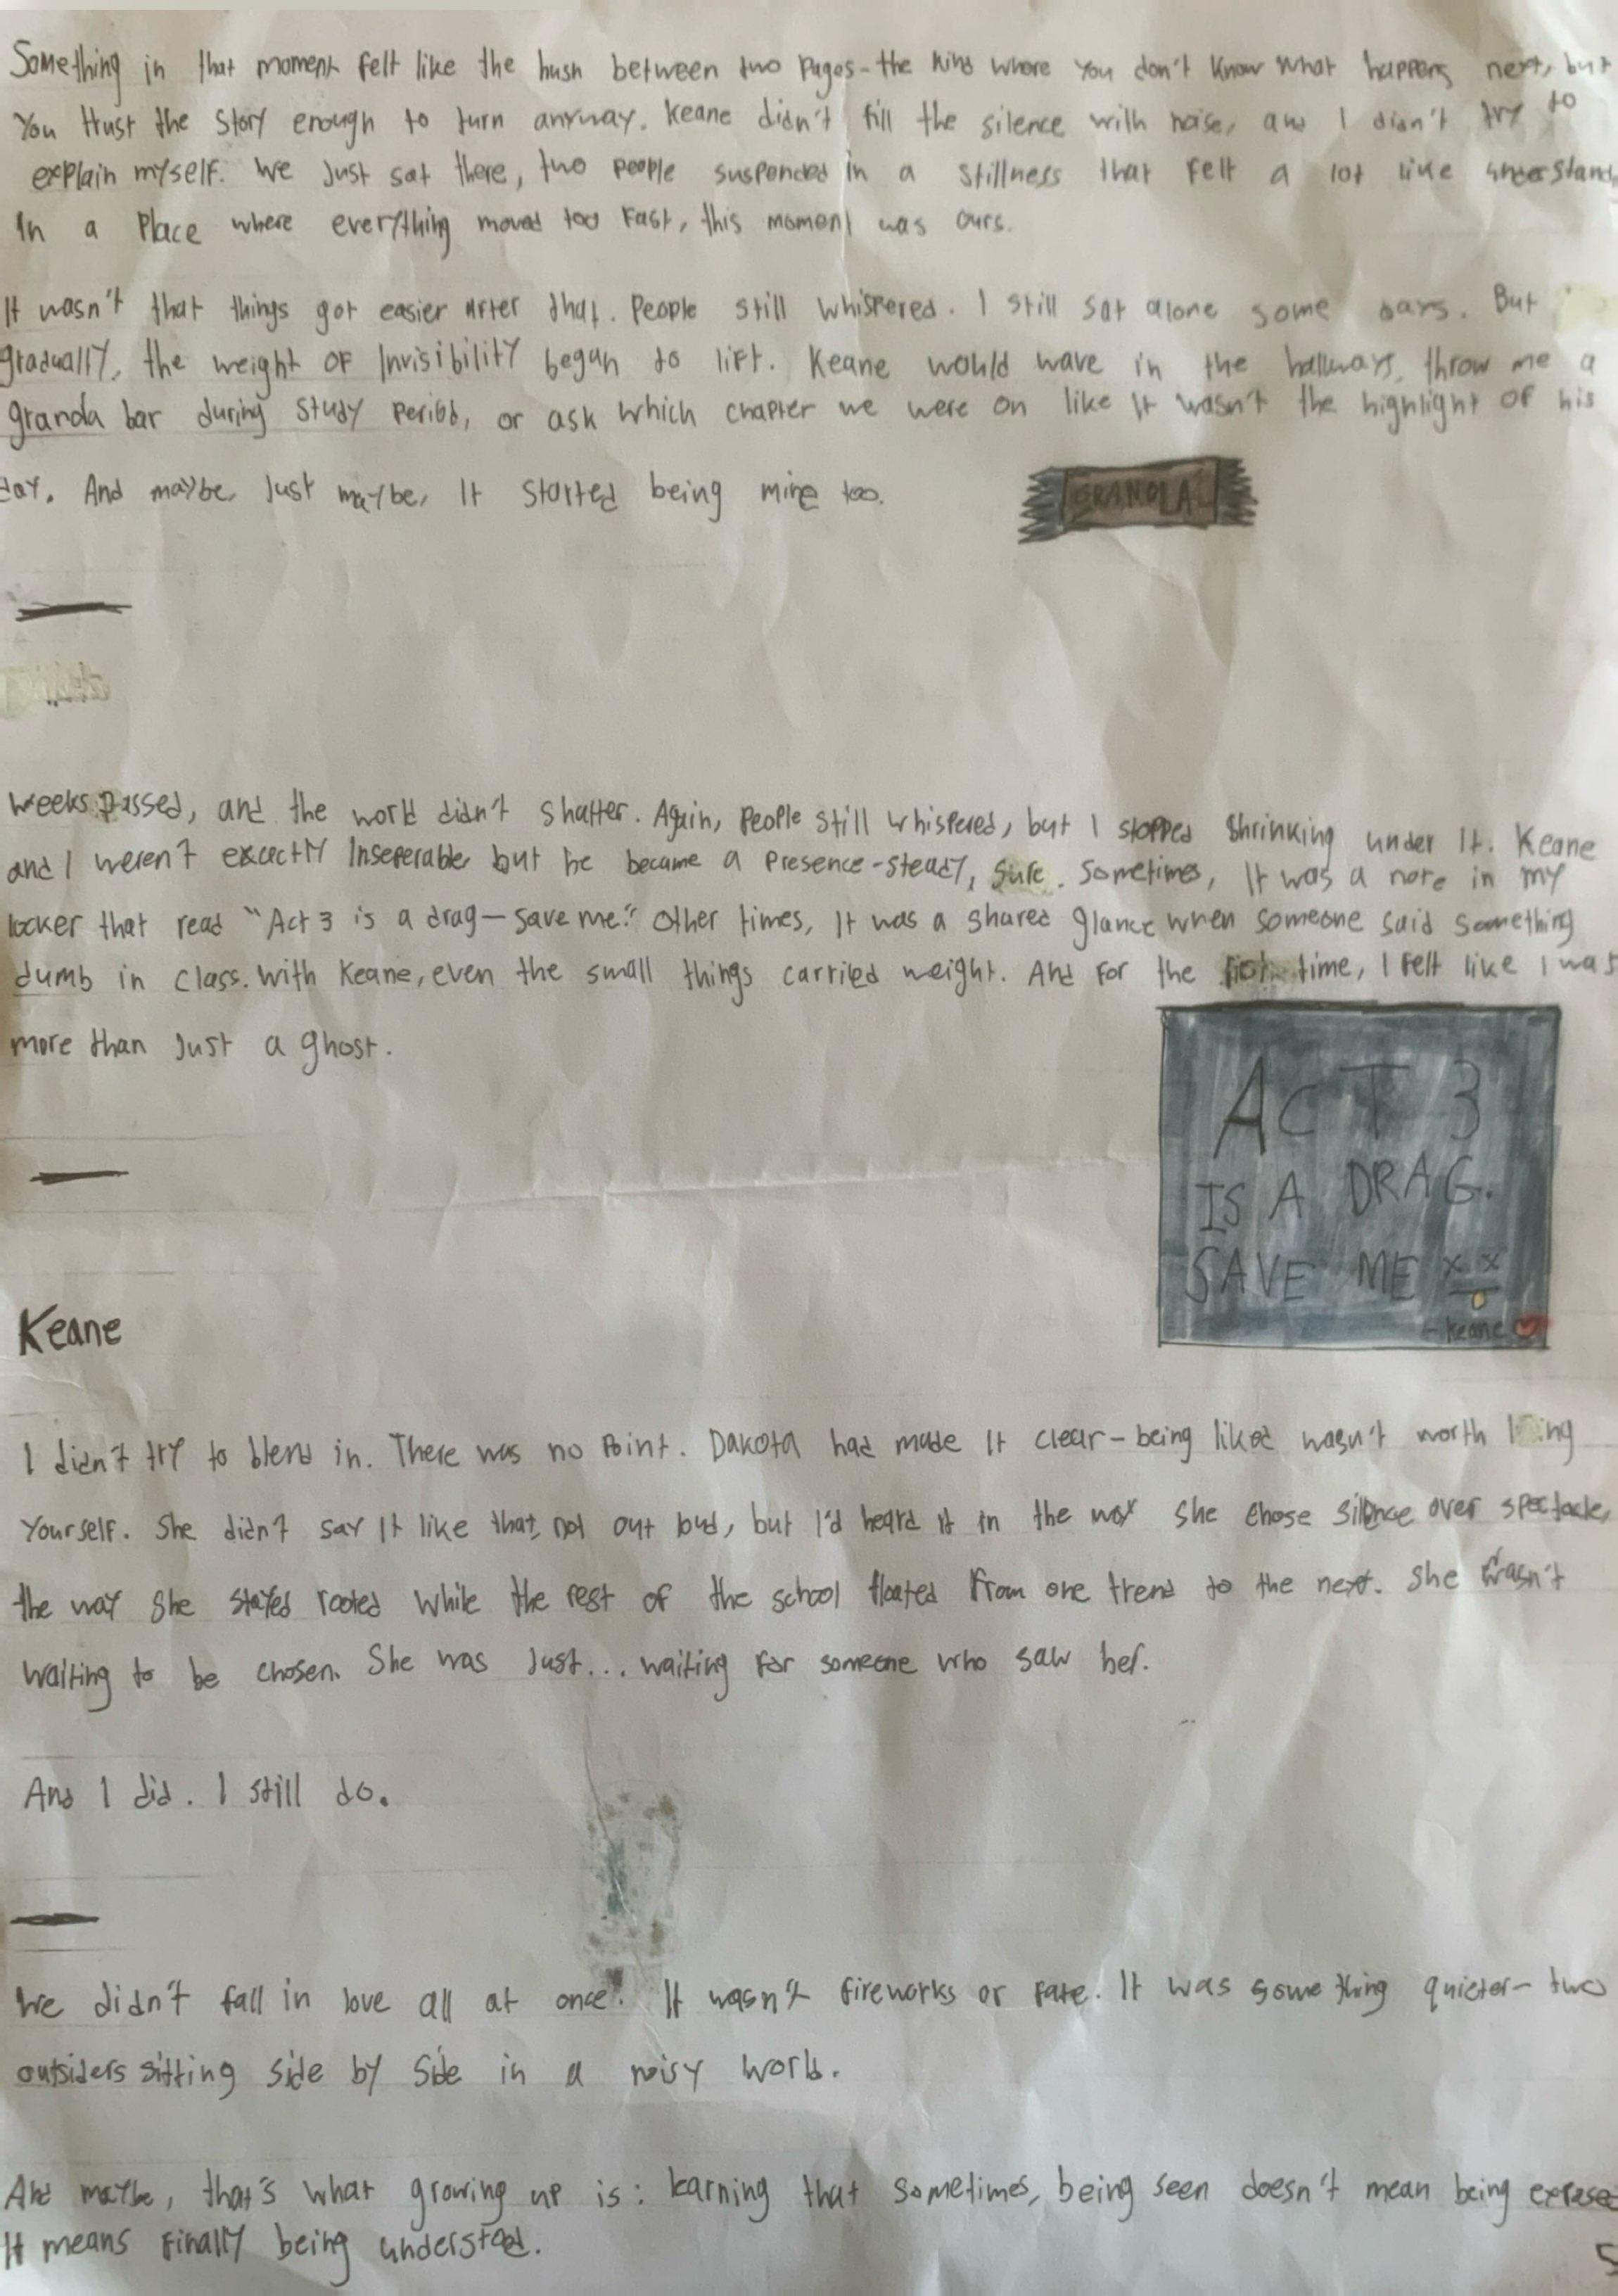 Something in that moment felt like the hush between two pages - the kind where you don't know what happens next, but
You trust the story enough to turn anyway. Keane didn't fill the silence with noise, and I didn't try to
explain myself. We just sat there, two people suspended in a stillness that felt a lot like understand
In a place where everything moved too fast, this moment was ours.
It wasn't that things got easier after that. People still whispered. I still sat alone some days. But
gradually, the weight of invisibility began to lift. Keane would wave in the hallways, throw me a
granola bar during study period, or ask which chapter we were on like it wasn't the highlight of his
day. And maybe, just maybe, it started being mine too.
GRANOLA
Weeks passed, and the world didn't shatter. Again, people still whispered, but I stopped shrinking under it. Keane
and I weren't exactly inseperable but he became a presence - steady, sure. Sometimes, it was a note in my
locker that read "Act 3 is a drag — save me." Other times, it was a shared glance when someone said something
dumb in class. With Keane, even the small things carried weight. And for the first time, I felt like I was
more than just a ghost.
ACT 3
IS A DRAG.
SAVE ME
- Keane
Keane
I didn't try to blend in. There was no point. Dakota had made it clear - being liked wasn't worth
yourself. She didn't say it like that, not out loud, but I'd heard it in the way she chose silence over spectacle,
the way she stayed rooted while the rest of the school floated from one trend to the next. She wasn't
waiting to be chosen. She was just... waiting for someone who saw her.
And I did. I still do.
We didn't fall in love all at once. It wasn't fireworks or fate. It was something quieter - two
outsiders sitting side by side in a noisy world.
And maybe, that's what growing up is: learning that sometimes, being seen doesn't mean being expose
It means finally being understood.
5